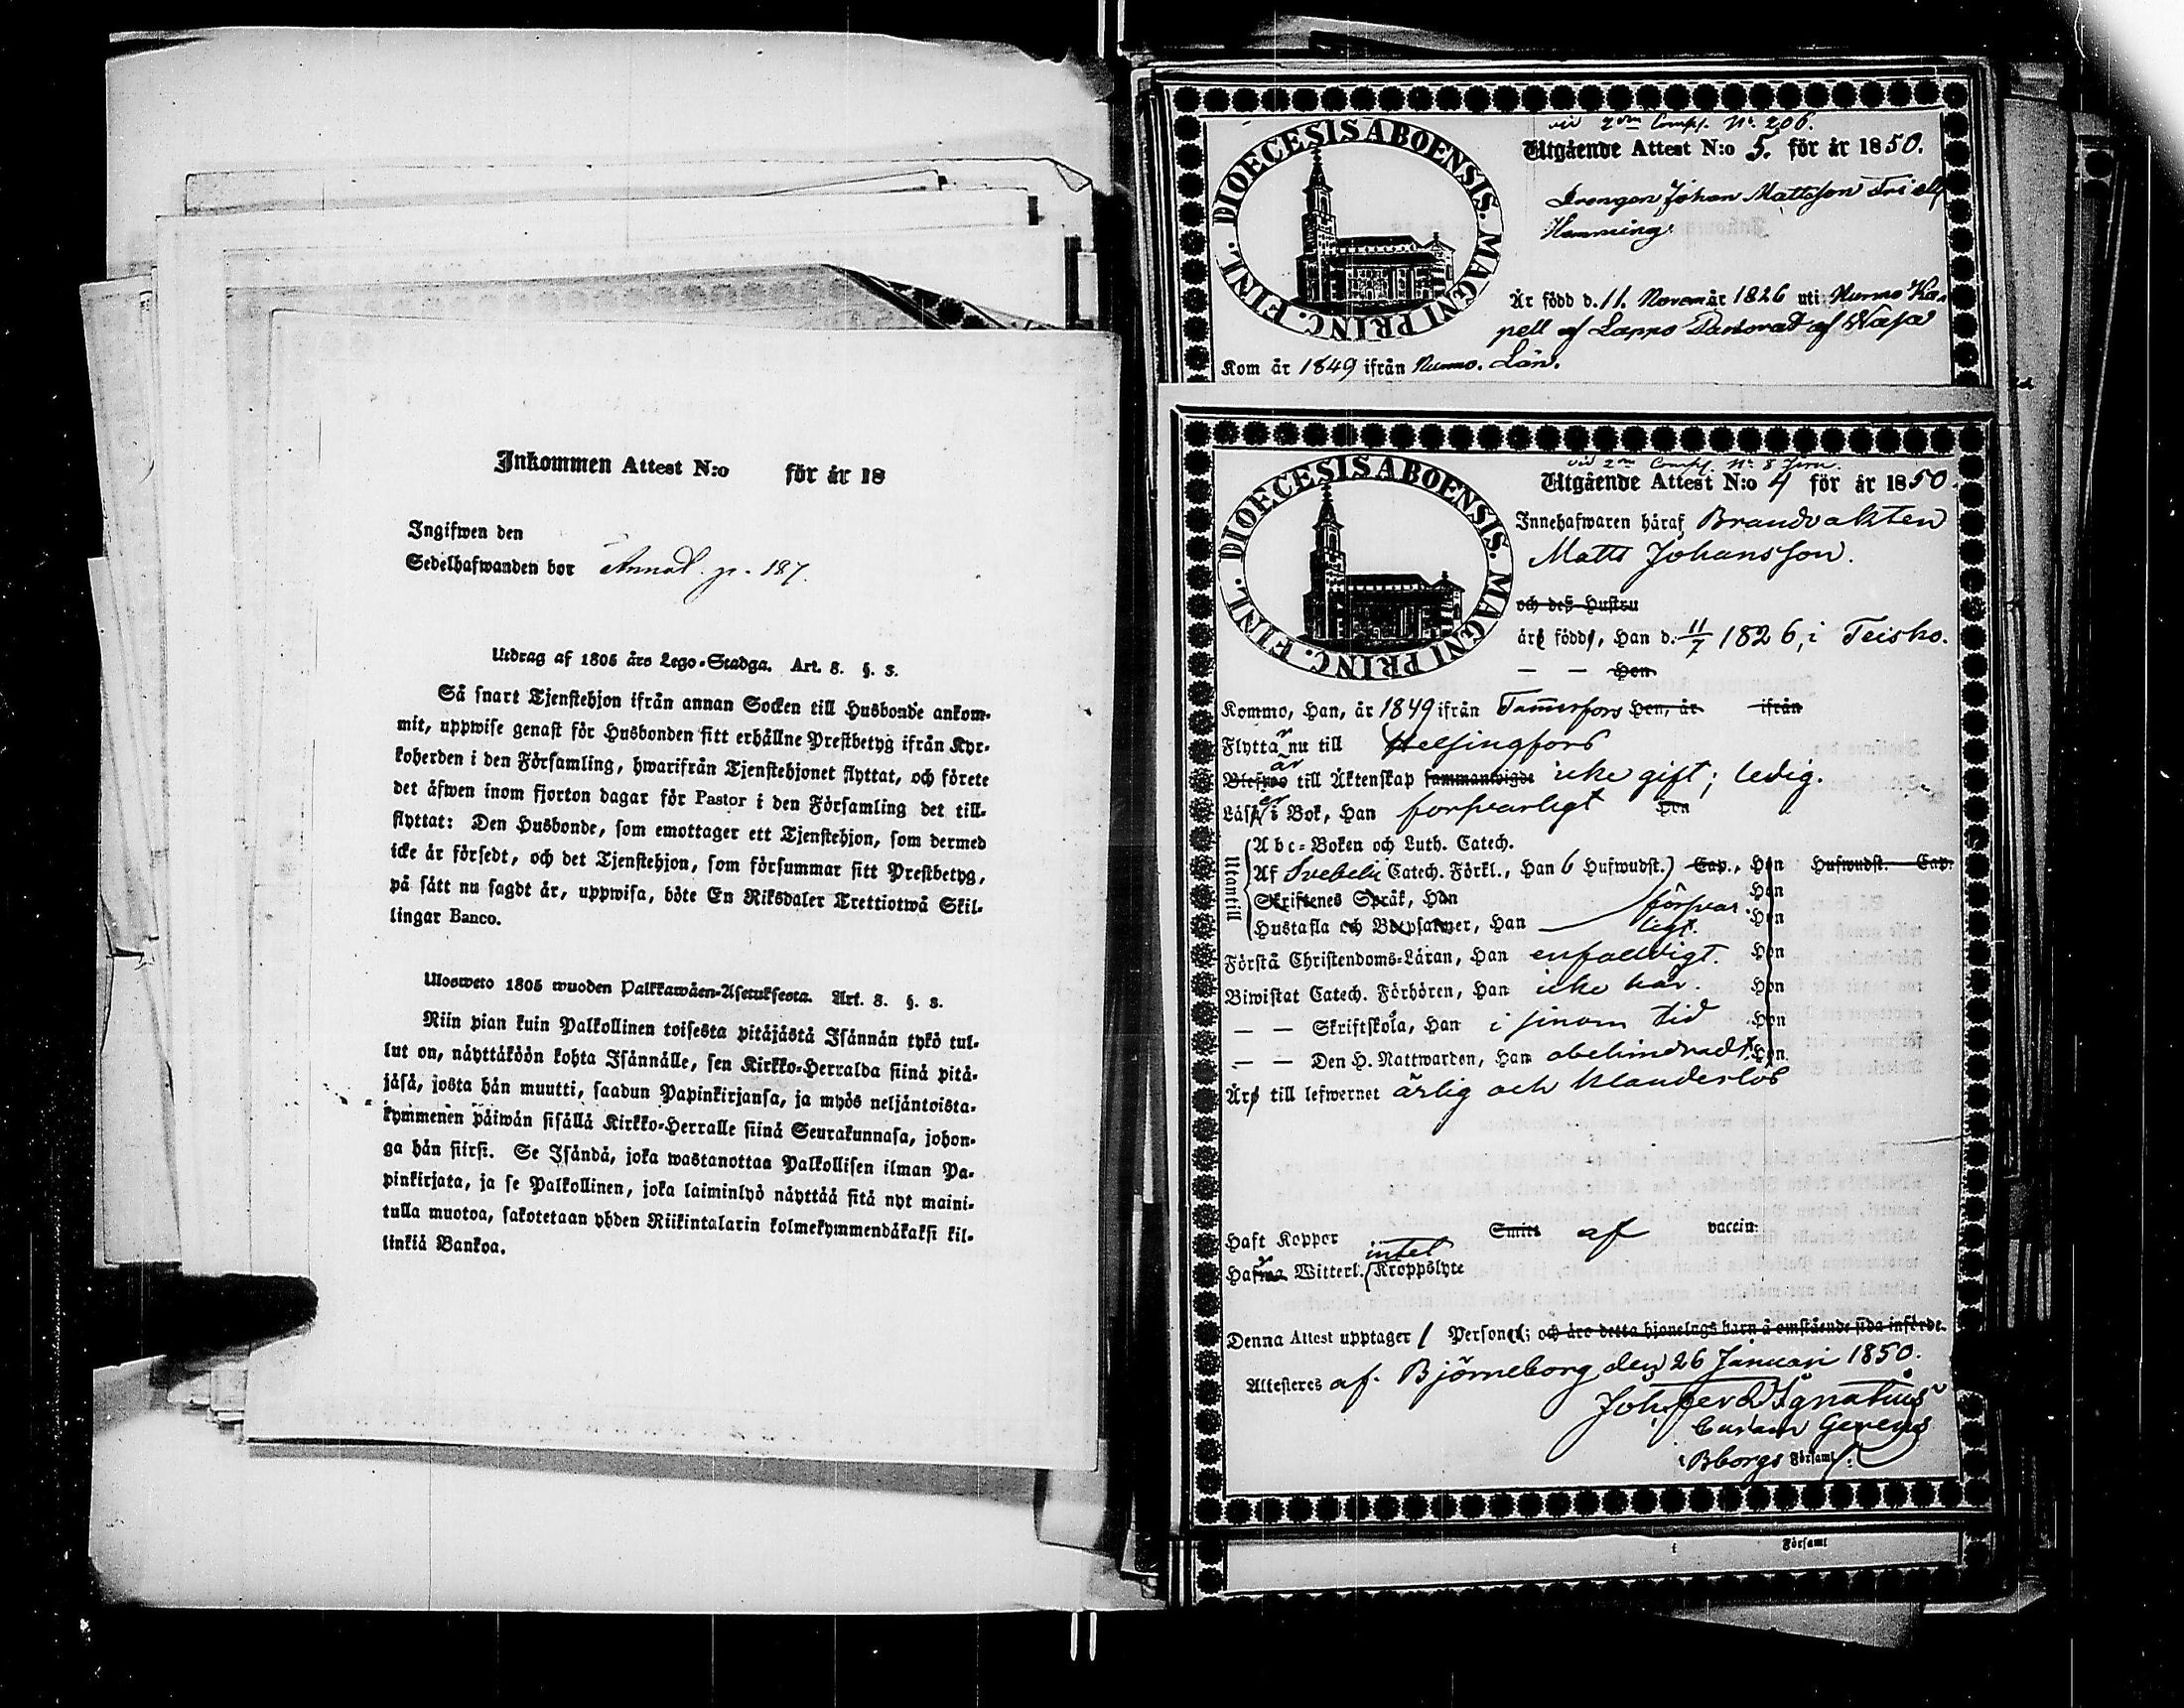 Inkommen Attest N:o för år 18
Ingifwen den
Sedelhafwanden bor p. 187.
Utdrag af 1805 års Lego-Stadga. Art. 8. §. 3.
Så snart Tjenstehjon ifrån annan Socken till Husbonde ankom-
mit, uppwise genast för Husbonden sitt erhållne Prestbetyg ifrån Kyr-
koherden i den Församling, hwarifrån Tjenstehjonet flyttat, och förete
det äfwen inom fjorton dagar för Pastor i den Församling det till-
flyttat: Den Husbonde, som emottager ett Tjenstehjon, som dermed
icke är försedt, och det Tjenstehjon, som försummar sitt Prestbetyg,
på sätt nu sagdt är, uppwisa, böte En Riksdaler Trettiotwå Skil-
lingar Banco.
Ulosweto 1805 wuoden Palkkawäen-Asetuksesta. Art. 8. §. 3.
Niin pian kuin Palkollinen toisesta pitäjästä Isännän tykö tul-
lut on, näyttäköön kohta Isännälle, sen Kirkko-Herralda siinä pitä-
jäsä, josta hän muutti, saadun Papinkirjansa, ja myös neljäntoista-
kymmenen päiwän sisällä Kirkko-Herralle siinä Seurakunnasa, johon-
ga hän siirsi. Se Isändä, joka wastanottaa Palkollisen ilman Pa-
pinkirjata, ja se Palkollinen, joka laiminlyö näyttää sitä nyt maini-
tulla muotoa, sakotetaan yhden Riikintalarin kolmekymmendäkaksi kil-
linkiä Bankoa.
DIOECESIS ABOENSIS. MAGNI PRINC. FINL.
vid 2dra Comp. N:o 206.
Utgående Attest N:o 5. för år 1850.
Drengen Johan Mattsson
Hemming.
Är född d. 11. Novemär 1826 uti Nurmo Ka-
pell af Lappo Pastorat af Wasa
Kom år 1849 ifrån Nurmo. Län.
DIOECESIS ABOENSIS. MAGNI PRINC. FINL.
vid 2dra Comp. N:o 8
Utgående Attest N:o 4 för år 1850.
Innehafwaren häraf Brandvakten
Matts Johansson.
och des Hustru
äre födde, Han d. 11/7 1826, i Teisko.
— — Hon
Kommo, Han, år 1849 ifrån Tammerfors Hon, år ifrån
Flyttar nu till Helsingfors
Blefwo är till Äktenskap sammanwigde icke gift; ledig.
Läser i Bok, Han försvarligt Hon
Utantill
Abc-Boken och Luth. Catech.
Af Svebelii Catech. Förkl., Han 6 Hufwudst.) Cap., Hon Hufwudst. Cap.
Skriftenes Språk, Han Hon
Hustafla och Botpsalmer, Han försvarligt. Hon
Förstå Christendoms-Läran, Han enfaldigt. Hon
Biwistat Catech. Förhören, Han icke här. Hon
— — Skriftskola, Han i sinom tid Hon
— — Den H. Nattwarden, Han obehindradt. Hon
Äre till lefwernet ärlig och klanderlös
Haft Koppor Smitt af vaccin:
Hafwa Witterl. intet Kroppslyte
Denna Attest upptager 1 Person; och äro detta hjonelags barn å omstående sida införde.
Attesteres af. Björneborg den 26 Januari 1850.
Joh. Ferd. Ignatius
Curam Gerens
i Bborgs Församl.
i Församl